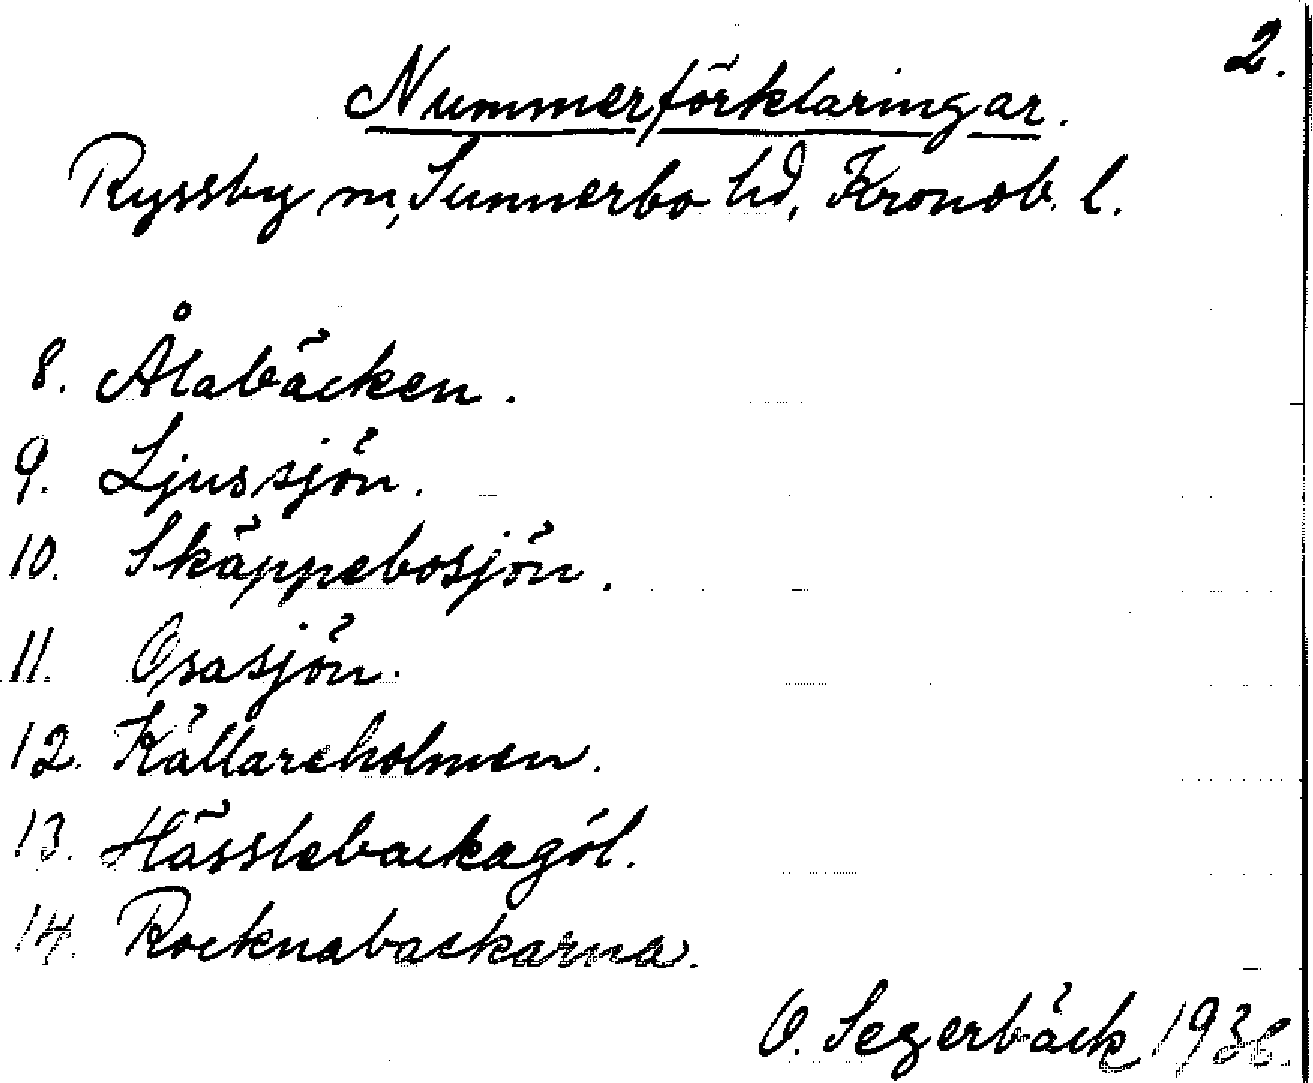 2.
Nummerförklaringar.
Ryssby sn, Sunnerbo hd, Kronob. l.
8. Ålabäcken.
9. Ljussjön.
10. Skäppebosjön.
11. Osasjön.
12. Källareholmen.
13. Hässlebackagöl.
14. Rocknabackarna.
O. Segerbäck